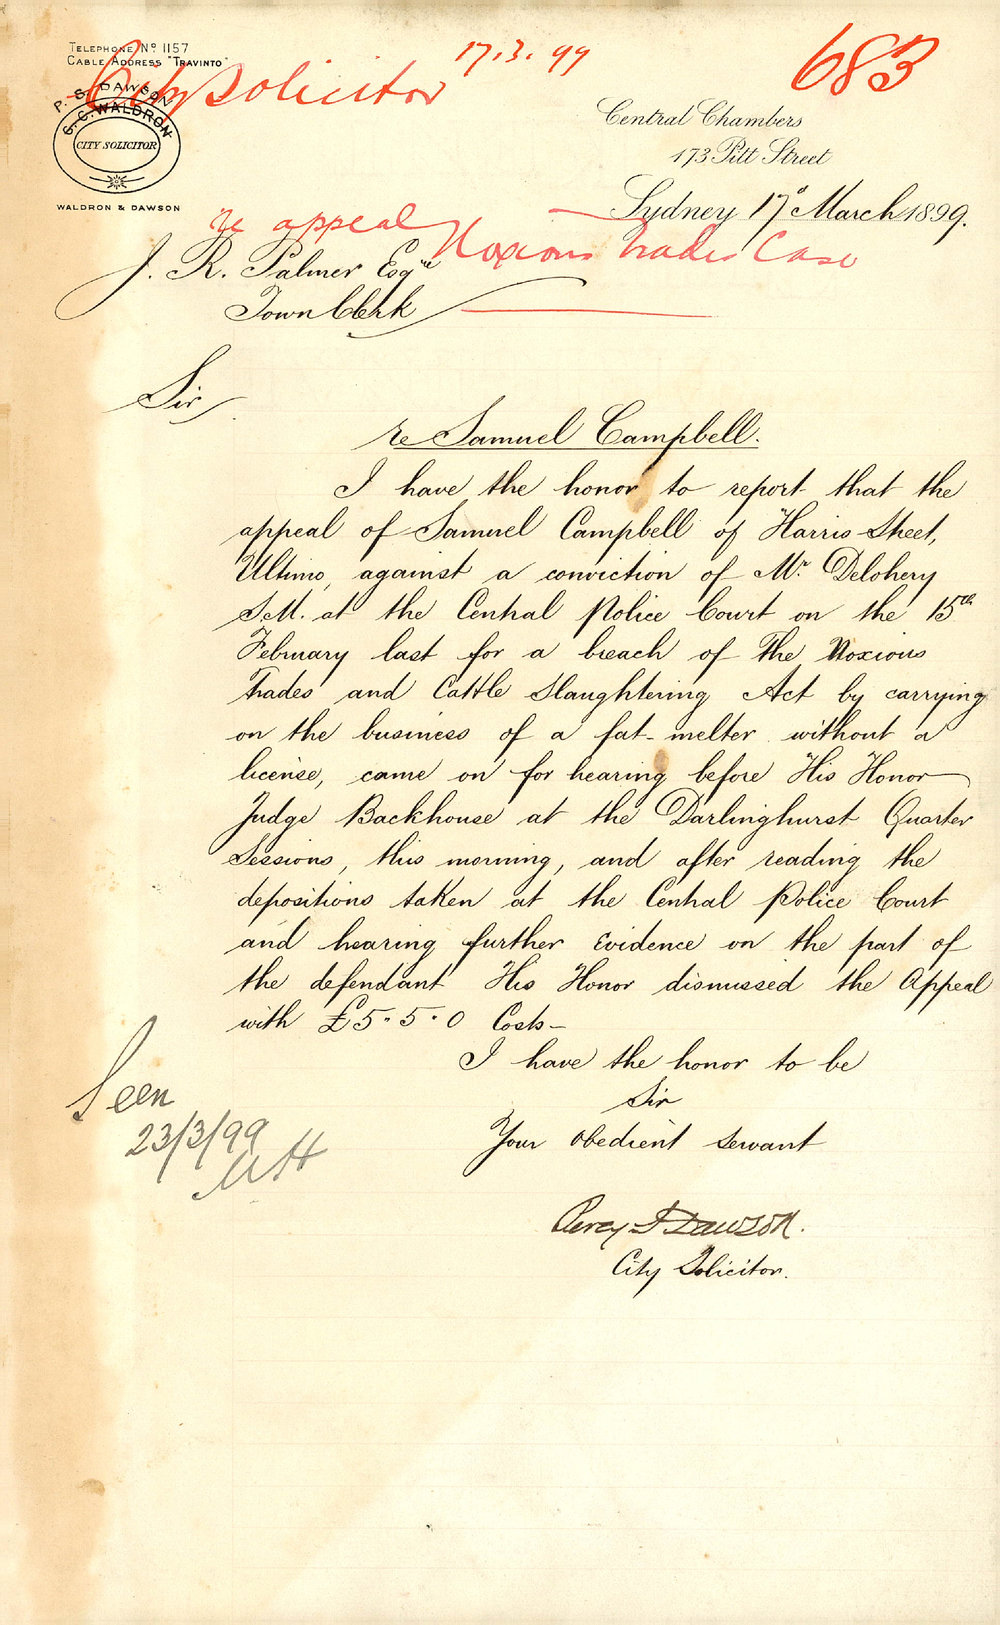 TELEPHONE Nº 1157
CABLE ADDRESS "TRAVINTO"
17.3.99
683
City Solicitor
P. S. DAWSON
G. C. WALDRON
CITY SOLICITOR
WALDRON & DAWSON
Central Chambers
173 Pitt Street
Sydney 17º March 1899.
re appeal Noxious Trades Case
J. R. Palmer Esqre
Town Clerk
Sir
re Samuel Campbell.
I have the honor to report that the
appeal of Samuel Campbell of Harris Street,
Ultimo, against a conviction of Mr. Delohery
S.M. at the Central Police Court on the 15th
February last for a breach of The Noxious
Trades and Cattle Slaughtering Act by carrying
on the business of a fat-melter without a
license, came on for hearing before His Honor
Judge Backhouse at the Darlinghurst Quarter
Sessions, this morning, and after reading the
depositions taken at the Central Police Court
and hearing further Evidence on the part of
the defendant His Honor dismissed the Appeal
with £5.5.0 Costs—
I have the honor to be
Sir
Your obedient servant
Seen
23/3/99
Percy S Dawson.
City Solicitor.